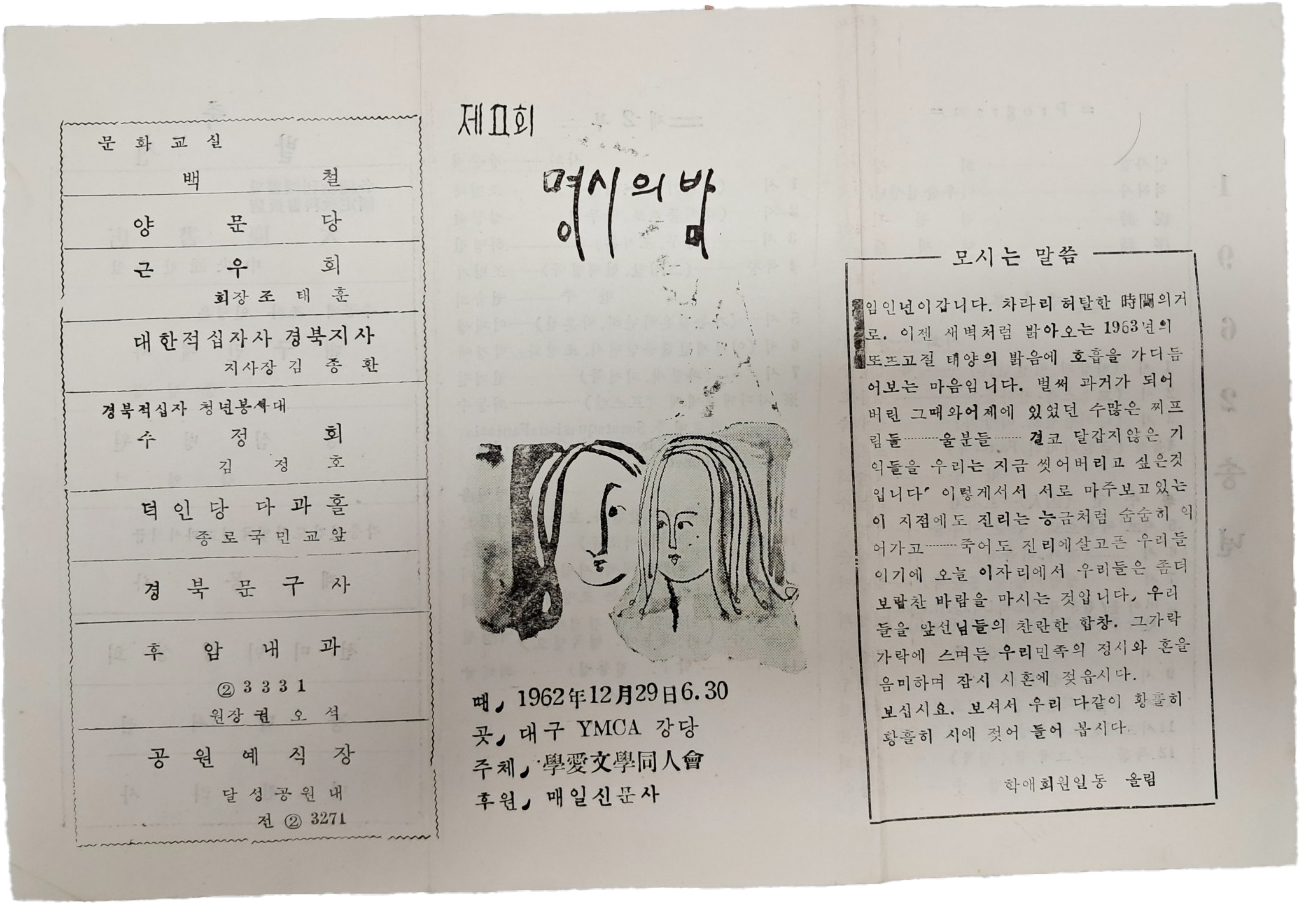 문화교실
백 철
양 문 당
근 우 회
회장 조 태 훈
대한적십자사 경북지사
지사장 김 종 환
경북적십자 청년봉사대
수 정 회
김 정 호
덕인당 다과홀
종로국민교앞
경 북 문 구 사
후 암 내 과
② 3331
원장 권 오 석
공 원 예 식 장
달성공원내
전 ② 3271
제Ⅱ회
명시의 밤
때, 1962年12月29日6.30
곳, 대구 YMCA 강당
주체, 學愛文學同人會
후원, 매일신문사
모시는 말씀
임인년이갑니다. 차라리 허탈한 時間의거
로. 이젠 새벽처럼 밝아오는 1963년의
또뜨고질 태양의 밝음에 호흡을 가다듬
어보는 마음입니다. 벌써 과거가 되어
버린 그때와어제에 있었던 수많은 찌프
림들……울분들…… 결코 달갑지않은 기
억들을 우리는 지금 씻어버리고 싶은것
입니다' 이렇게서서 서로 마주보고있는
이 지점에도 진리는 능금처럼 숨숨히 익
어가고……죽어도 진리에살고픈 우리들
이기에 오늘 이자리에서 우리들은 좀더
보람찬 바람을 마시는 것입니다, 우리
들을 앞선님들의 찬란한 합창. 그가락
가락에 스며든 우리민족의 정시와 혼을
음미하며 잠시 시혼에 젖읍시다.
보십시요. 보셔서 우리 다같이 황홀히
황홀히 시에 젖어 들어 봅시다.
학애회원일동 올림